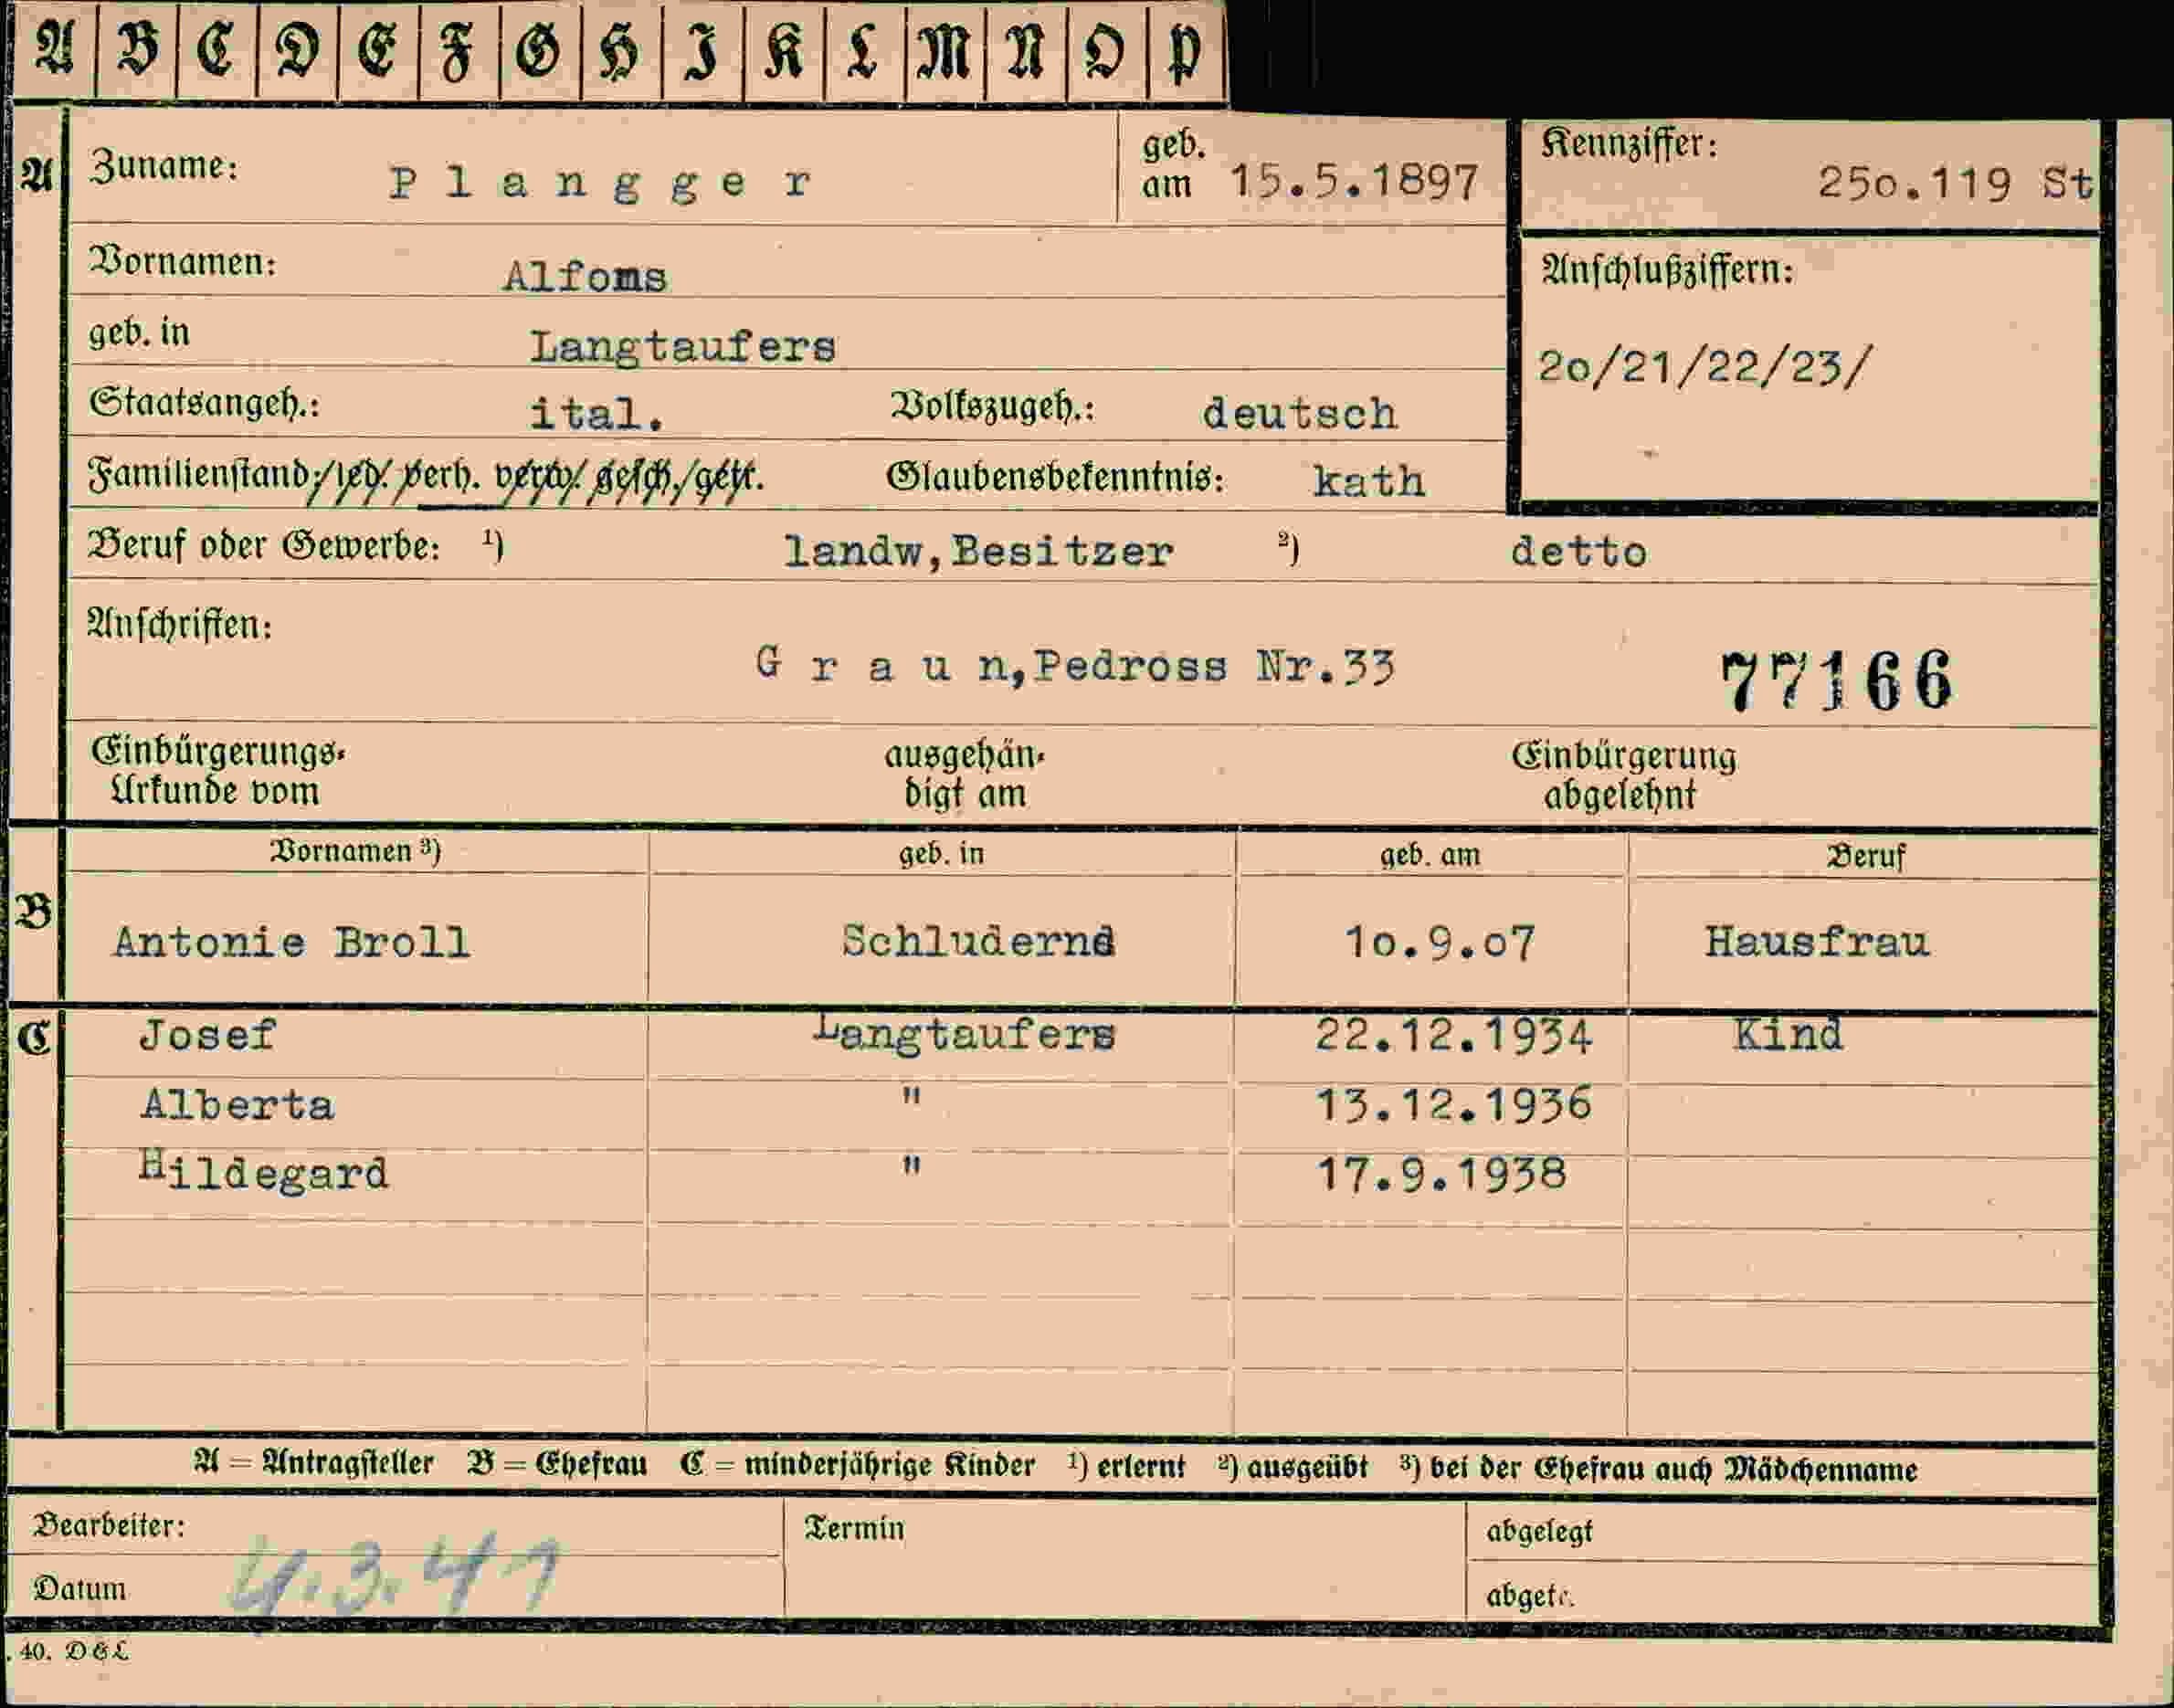 A B C D E F G H I K L M N O P
A Zuname: Plangger geb. am 15.5.1897 Kennziffer: 25o.119 St
Vornamen: Alfoms Anschlußziffern:
geb. in Langtaufers 2o/21/22/23/
Staatsangeh.: ital. Volkszugeh.: deutsch
Familienstand: led. verh. verw. gesch. getr. Glaubensbekenntnis: kath
Beruf oder Gewerbe: ¹) landw,Besitzer ²) detto
Anschriften:
Graun,Pedross Nr.33 77166
Einbürgerungs-Urkunde vom ausgehän-digt am Einbürgerung abgelehnt
Vornamen ³) geb. in geb. am Beruf
B Antonie Broll Schludernd 1o.9.o7 Hausfrau
C Josef Langtaufers 22.12.1934 Kind
Alberta " 13.12.1936
Hildegard " 17.9.1938
A = Antragsteller B = Ehefrau C = minderjährige Kinder ¹) erlernt ²) ausgeübt ³) bei der Ehefrau auch Mädchenname
Bearbeiter: Termin abgelegt
Datum 4.3.41 abgetr.
. 40. D&L